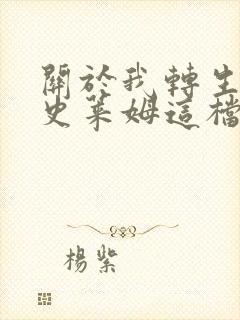 關於我轉生
史萊姆這檔
楊紫